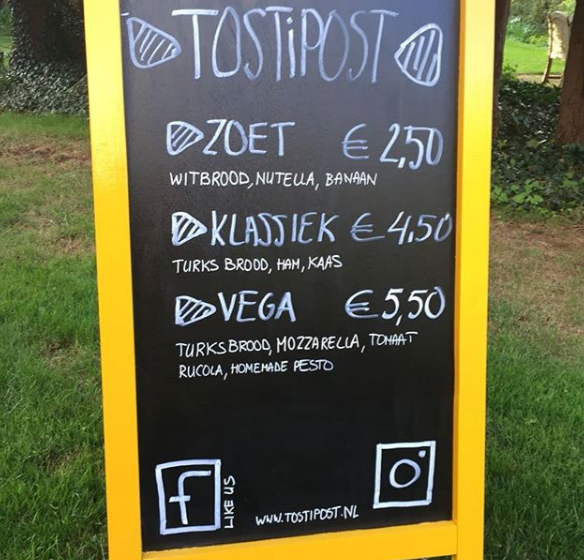 TOSTIPOST
ZOET € 2,50
WITBROOD, NUTELLA, BANAAN
KLASSIEK € 4,50
TURKS BROOD, HAM, KAAS
VEGA € 5,50
TURKSBROOD, MOZZARELLA, TOMAAT
RUCOLA, HOMEMADE PESTO
f LIKE US
WWW.TOSTIPOST.NL